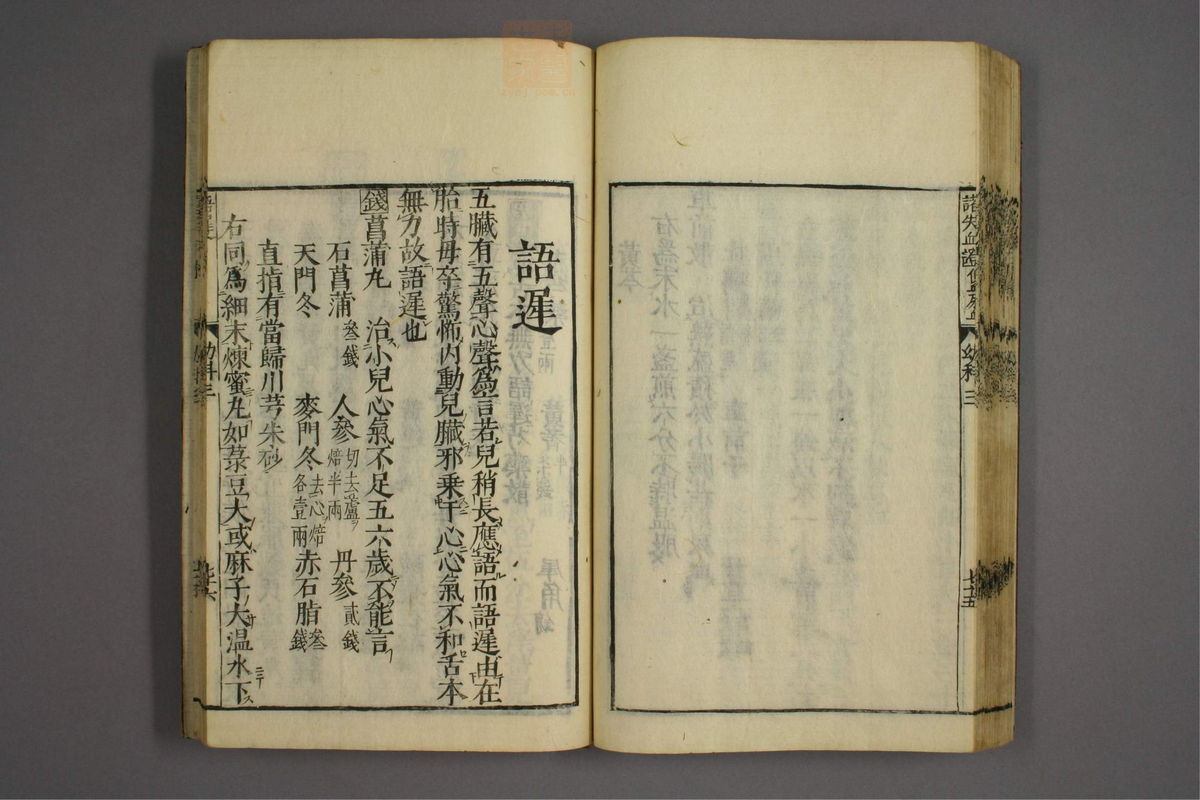 幼科三
七十五
語遲
五臟有五聲心聲爲言若兒稍長應語而語遲由在
胎時母卒驚怖內動兒臟邪乗干心心氣不和舌本
無力故語遲也
錢菖蒲丸 治小兒心氣不足五六歲不能言
石菖蒲叁錢 人參切去蘆焙半兩 丹參貳錢
天門冬 麥門冬去心焙各壹兩 赤石脂叁錢
直指有當歸川芎朱砂
右同爲細末煉蜜丸如菉豆大或麻子大温水下
幼科三
七十六